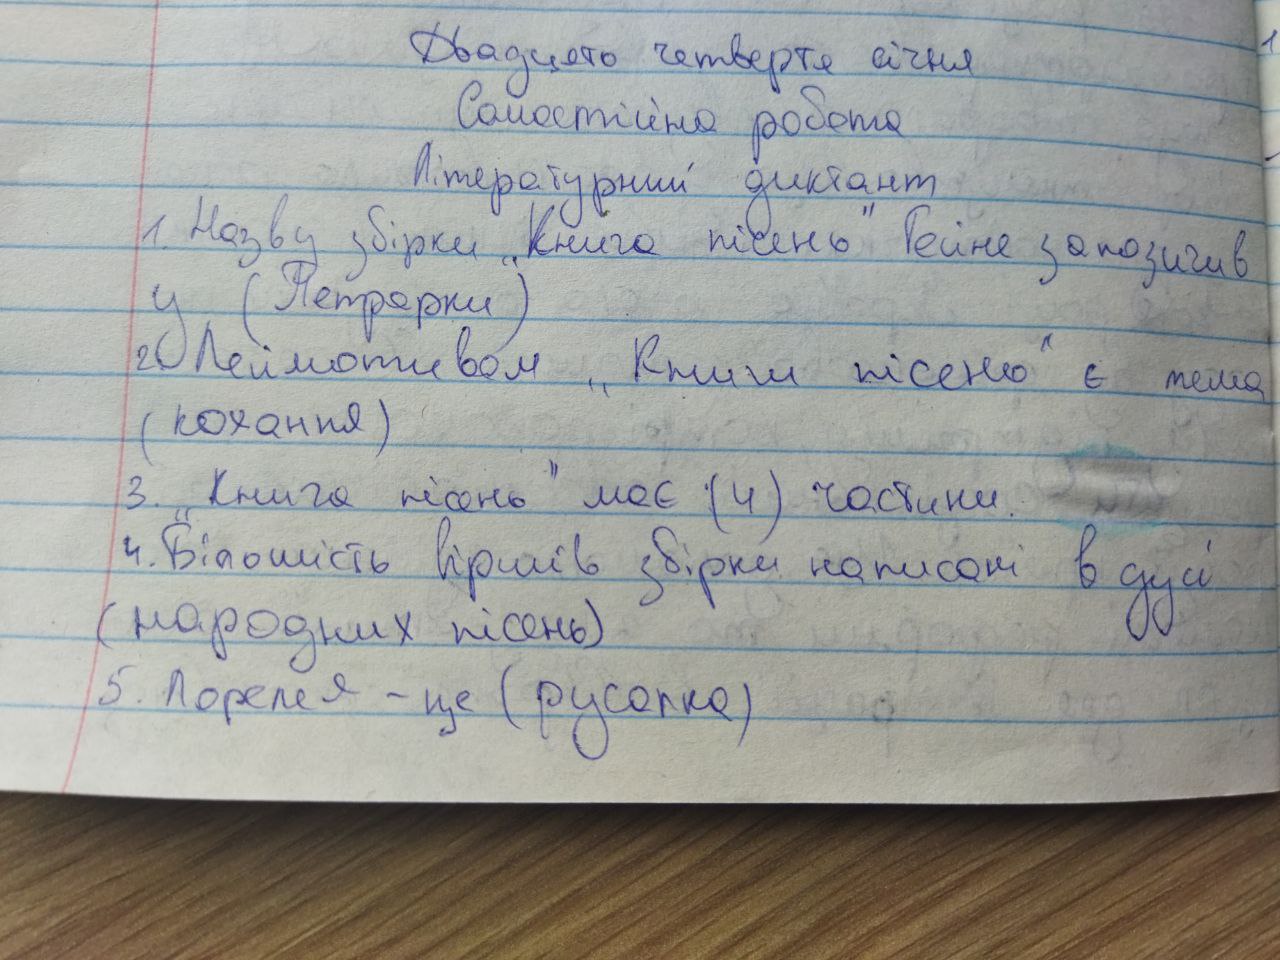 Двадцято четверте січня
Самостійна робота
Літературний диктант
1. Назву збірки „Книга пісень" Гейне запозичив
у (Петрарки)
2. Леймотивом „Книги пісень" є тема
(кохання)
3. „Книга пісень" має (4) частини.
4. Більшість віршів збірки написані в дусі
(народних пісень)
5. Лорелея - це (русалка)